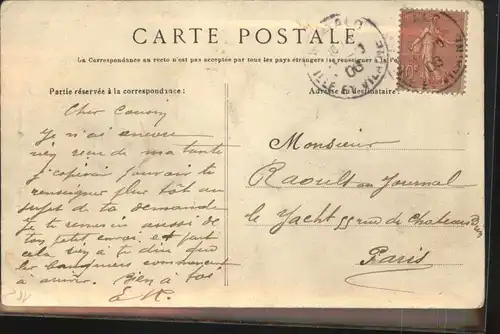 CARTE POSTALE
La Correspondance au recto n'est pas acceptée par tous les pays étrangers (se renseigner à la
Partie réservée à la correspondance :
Adresse du destinataire.
Cher Cousin
Je n'ai encore
rien reçu de ma tante
j'espérais pouvoir te
renseigner plus tôt au
sujet de ta demande
Je te remercie aussi de
ton petit envoi, et à part
cela rien à te dire que
les commencent
à arriver. Bien à toi
Monsieur
Raoult au Journal
le Yacht 55 rue de Chateaudun
Paris